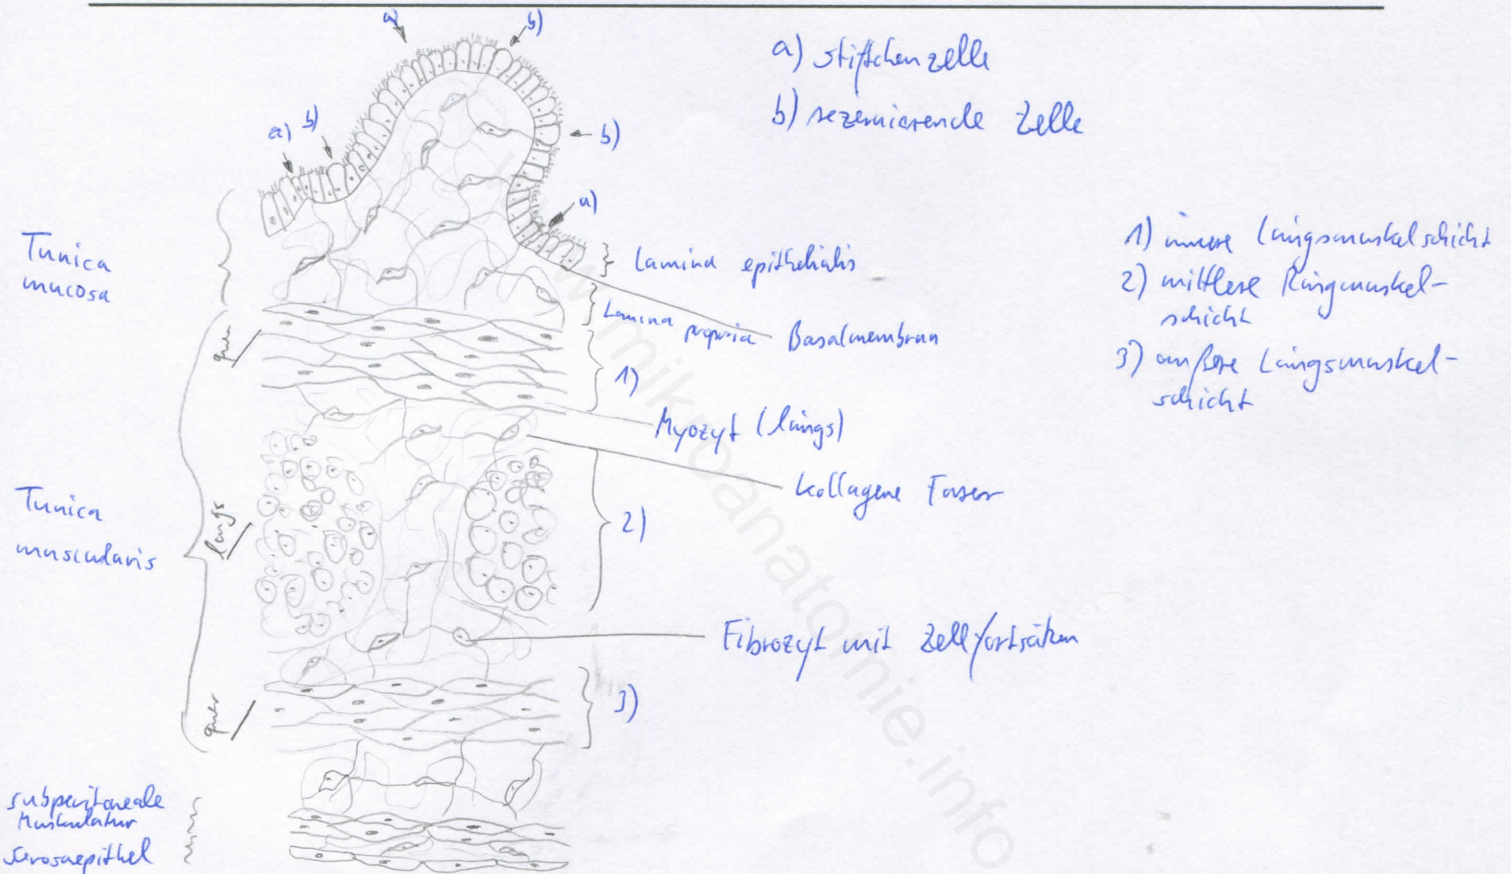 a)
b)
a) stiftchenzelle
b) sezernierende Zelle
a)
b)
b)
a)
Tunica
mucosa
} Lamina epithelialis
Lamina propria
Basalmembran
1) innere Längsmuskelschicht
2) mittlere Ringmuskel-
schicht
3) äußere Längsmuskel-
schicht
quer
1)
Myozyt (längs)
kollagene Faser
Tunica
muscularis
längs
2)
Fibrozyt mit Zellfortsätzen
quer
3)
subperitoneale
Muskulatur
Serosaepithel
www.mikroanatomie.info